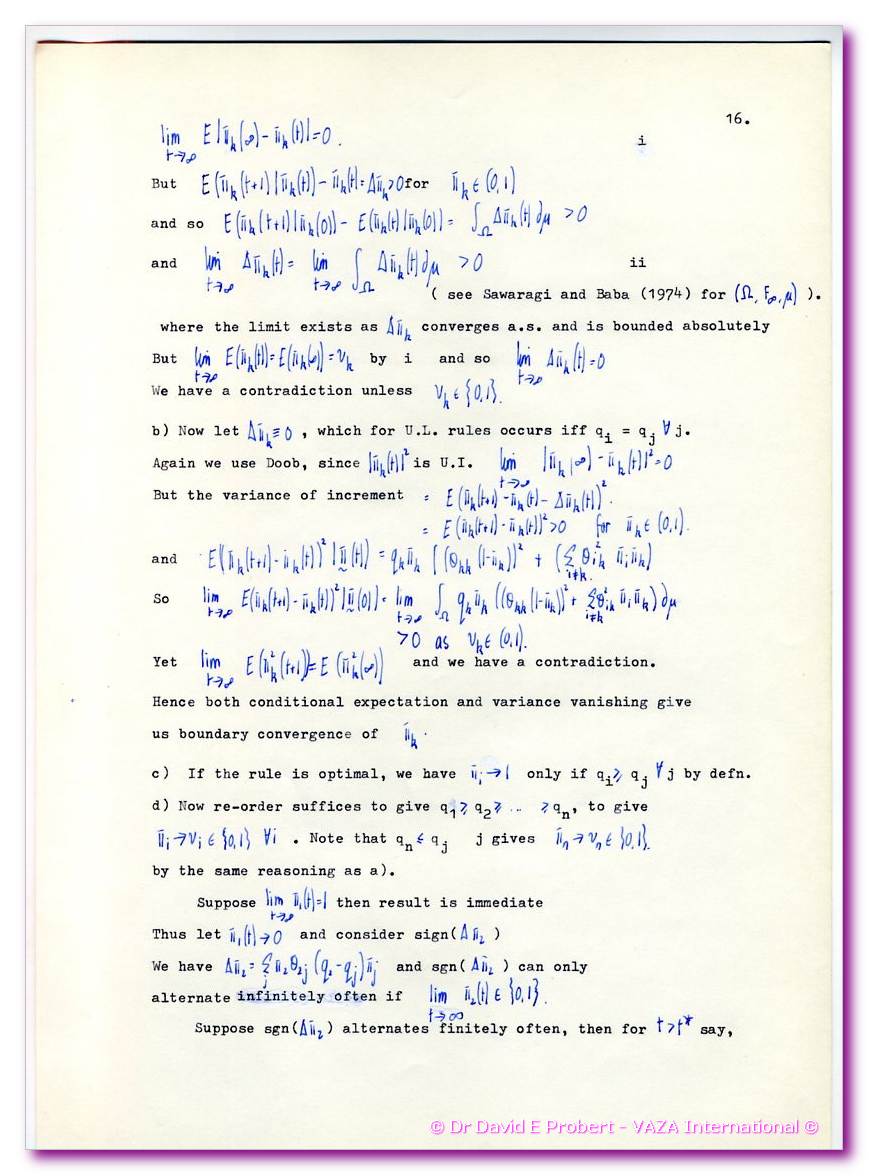 16.
lim_{t→∞} E|π̄_k(∞) - π̄_k(t)| = 0 . i
But E(π̄_k(t+1)|π̄_k(t)) - π̄_k(t) = Δπ̄_k > 0 for π̄_k ∈ (0,1)
and so E(π̄_k(t+1)|π̄_k(0)) - E(π̄_k(t)|π̄_k(0)) = ∫_Ω Δπ̄_k(t) ∂μ > 0
and lim_{t→∞} Δπ̄_k(t) = lim_{t→∞} ∫_Ω Δπ̄_k(t) ∂μ > 0 ii
( see Sawaragi and Baba (1974) for (Ω, F_∞, μ) ).
where the limit exists as Δπ̄_k converges a.s. and is bounded absolutely
But lim_{t→∞} E(π̄_k(t)) = E(π̄_k(∞)) = ν_k by i and so lim_{t→∞} Δπ̄_k(t) = 0
We have a contradiction unless ν_k ∈ {0,1}.
b) Now let Δπ̄_k ≡ 0 , which for U.L. rules occurs iff q_i = q_j ∀ j.
Again we use Doob, since |π̄_k(t)|² is U.I. lim_{t→∞} |π̄_k(∞) - π̄_k(t)|² = 0
But the variance of increment = E(π̄_k(t+1) - π̄_k(t) - Δπ̄_k(t))² .
= E(π̄_k(t+1) - π̄_k(t))² > 0 for π̄_k ∈ (0,1).
and E(π̄_k(t+1) - π̄_k(t))² | π̄(t)) = q_k π̄_k [(θ_kk (1-π̄_k))² + (Σ_{i≠k} θ_ik² π̄_i π̄_k)
So lim_{t→∞} E(π̄_k(t+1) - π̄_k(t))² | π̄(0)) = lim_{t→∞} ∫_Ω q_k π̄_k ((θ_kk (1-π̄_k))² + Σ_{i≠k} θ²_ik π̄_i π̄_k) ∂μ
> 0 as ν_k ∈ (0,1).
Yet lim_{t→∞} E(π̄_k²(t+1)) = E(π̄_k²(∞)) and we have a contradiction.
Hence both conditional expectation and variance vanishing give
us boundary convergence of π̄_k .
c) If the rule is optimal, we have π̄_i → 1 only if q_i ≥ q_j ∀ j by defn.
d) Now re-order suffices to give q_1 ≥ q_2 ≥ ... ≥ q_n, to give
π̄_i → ν_i ∈ {0,1} ∀i . Note that q_n ≤ q_j j gives π̄_n → ν_n ∈ {0,1}.
by the same reasoning as a).
Suppose lim_{t→∞} π̄_1(t) = 1 then result is immediate
Thus let π̄_1(t) → 0 and consider sign(Δπ̄_2 )
We have Δπ̄_2 = Σ_j π̄_2 θ_2j (q_2 - q_j) π̄_j and sgn( Δπ̄_2 ) can only
alternate infinitely often if lim_{t→∞} π̄_2(t) ∈ {0,1}.
Suppose sgn(Δπ̄_2) alternates finitely often, then for t > t* say,
© Dr David E Probert - VAZA International ©